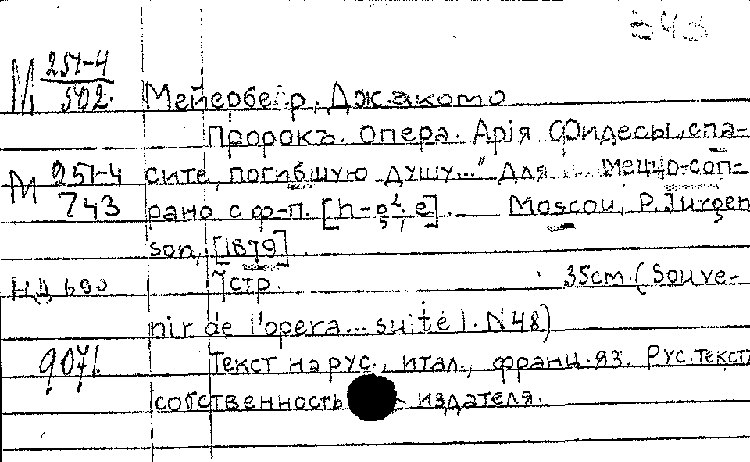 М 251-4/502.
Мейербеяр, Джакомо
Пророкъ. Опера. Арія Фидесы „спа-
М 251-4/743
сите, погибшую душу..." Для ... меццо-соп-
рано с ф-п. [h-gis², e]. Moscou, P. Jurgen
son, [1879]
7стр. 35cm. (Souve-
nir de l'opera... suite I. N48)
9071.
Текст на рус., итал., франц. яз. Рус. текст
собственность издателя.